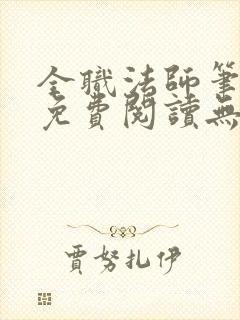 全職法師筆
免費閱讀無
賈努扎伊